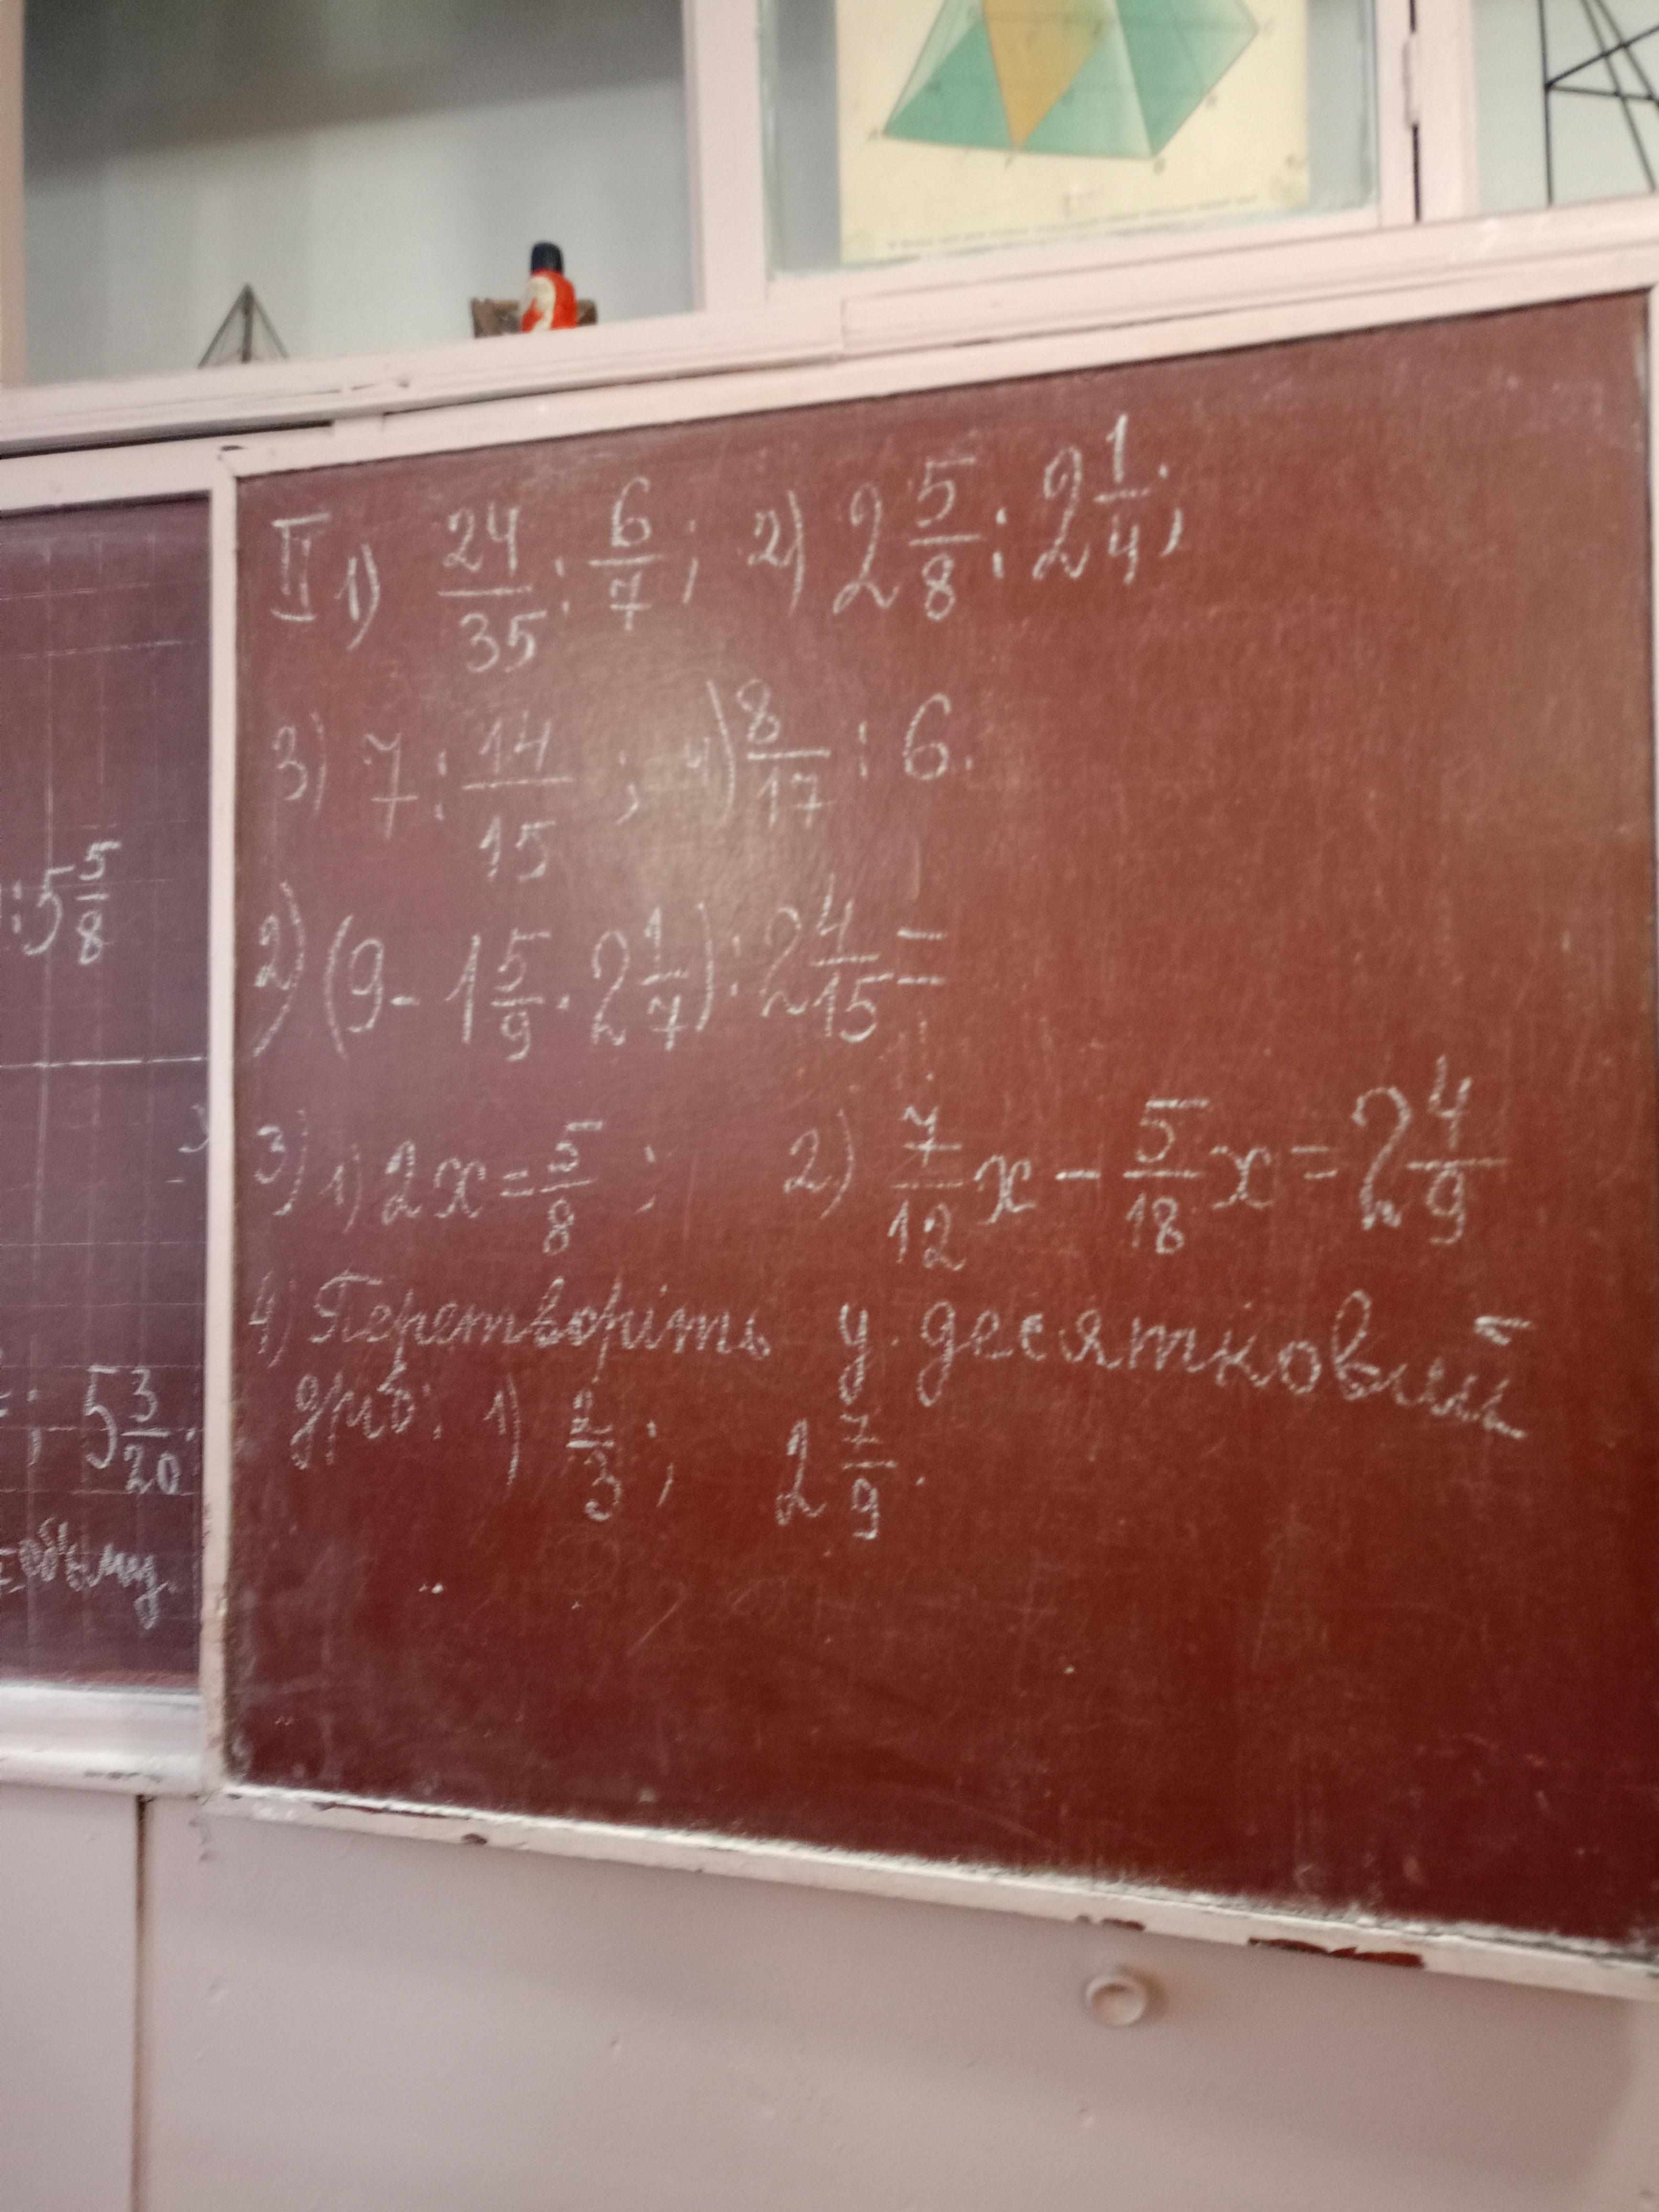 II 1) 24/35 : 6/7 ; 2) 2 5/8 : 2 1/4 ;
3) 7 : 14/15 ; 4) 8/17 : 6.
2) (9 - 1 5/9 · 2 1/7) : 2 4/15 =
3) 1) 2x = 5/8 ; 2) 7/12 x - 5/18 x = 2 4/9
4) Перетворіть у десятковий
дріб: 1) 2/3 ; 2 7/9.
: 5 5/8
; 5 3/20.